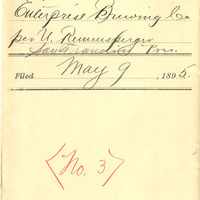 Enterprise Brewing Co
per U. Remensperger
San Francisco Pres.
Filed May 9 , 1895.
<No. 3>